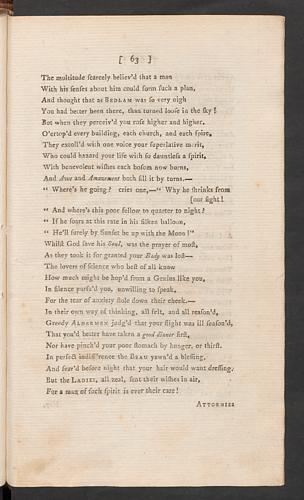 [ 63 ]
The multitude scarcely believ'd that a man
With his senses about him could form such a plan,
And thought that as BEDLAM was so very nigh
You had better been there, than turned loose in the sky!
But when they perceiv'd you rose higher and higher,
O'ertop'd every building, each church, and each spire,
They extoll'd with one voice your superlative merit,
Who could hazard your life with so dauntless a spirit,
With benevolent wishes each bosom now burns,
And Awe and Amazement both fill it by turns.—
" Where's he going? cries one,—" Why he shrinks from
[our sight!
" And where's this poor fellow to quarter to night?
" If he soars at this rate in his silken balloon,
" He'll surely by Sunset be up with the Moon!"
Whilst God save his Soul, was the prayer of most,
As they took it for granted your Body was lost—
The lovers of science who best of all know
How much might be hop'd from a Genius like you,
In silence pursu'd you, unwilling to speak,
For the tear of anxiety stole down their cheek.—
In their own way of thinking, all felt, and all reason'd,
Greedy ALDERMEN judg'd that your flight was ill season'd,
That you'd better have taken a good dinner first,
Nor have pinch'd your poor stomach by hunger, or thirst.
In perfect indiff'rence the BEAU yawn'd a blessing,
And fear'd before night that your hair would want dressing.
But the LADIES, all zeal, sent their wishes in air,
For a man of such spirit is ever their care!
ATTORNIES